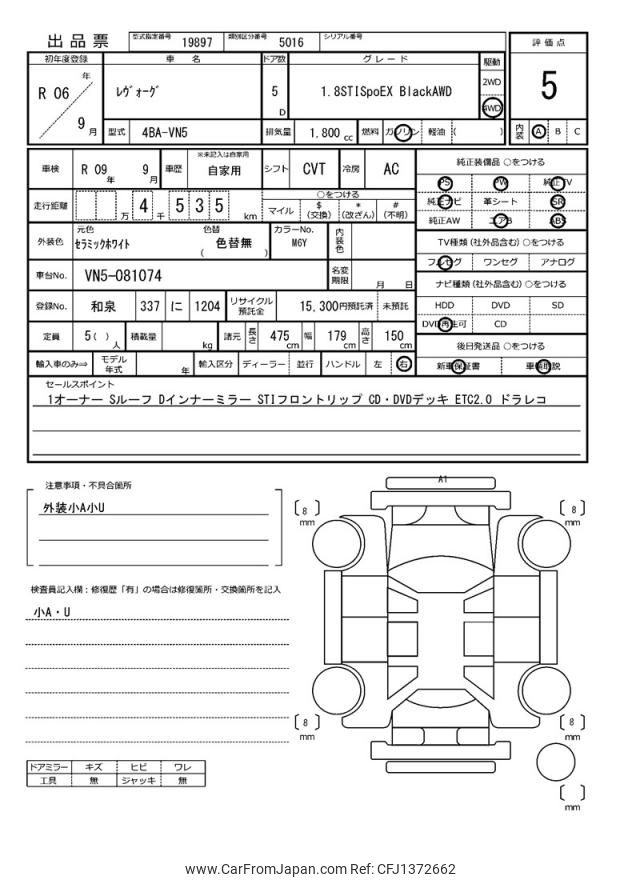 出品票 型式指定番号 19897 類別区分番号 5016 シリアル番号
初年度登録 車名 ドア数 グレード 駆動 評価点
R 06 年 9 月 ﾚｳﾞｫｰｸﾞ 5 D 1.8STISpoEX BlackAWD 2WD 4WD 5
型式 4BA-VN5 排気量 1.800 cc 燃料 ガソリン 軽油 ( ) 内装 A B C
車検 R 09 年 9 月 車歴 ※未記入は自家用 自家用 シフト CVT 冷房 AC
走行距離 万 4 千 5 3 5 km ○をつける マイル $(交換) *(改ざん) #(不明)
外装色 元色 ｾﾗﾐｯｸﾎﾜｲﾄ 色替 ( 色替無 ) カラーNo. M6Y 内装色
車台No. VN5-081074 名変期限 月 日
登録No. 和泉 337 に 1204 リサイクル預託金 15,300円預託済 未預託
定員 5( )人 積載量 kg 諸元 長さ 475 cm 幅 179 cm 高さ 150 cm
輸入車のみ⇨ モデル年式 年 輸入区分 ディーラー 並行 ハンドル 左 右
純正装備品 ○をつける
PS PW 純正TV
純正ナビ 革シート SR
純正AW エアB ABS
TV種類(社外品含む) ○をつける
フルセグ ワンセグ アナログ
ナビ種類(社外品含む) ○をつける
HDD DVD SD
DVD再生可 CD
後日発送品 ○をつける
新車保証書 車輌取説
セールスポイント
1オーナー Sルーフ Dインナーミラー STIフロントリップ CD・DVDデッキ ETC2.0 ドラレコ
注意事項・不具合箇所
外装小A小U
検査員記入欄：修復歴「有」の場合は修復箇所・交換箇所を記入
小A・U
A1
[ 8 ] mm [ 8 ] mm
[ 8 ] mm [ 8 ] mm
[ ] mm
ドアミラー キズ ヒビ ワレ
工具 無 ジャッキ 無
www.CarFromJapan.com Ref: CFJ1372662